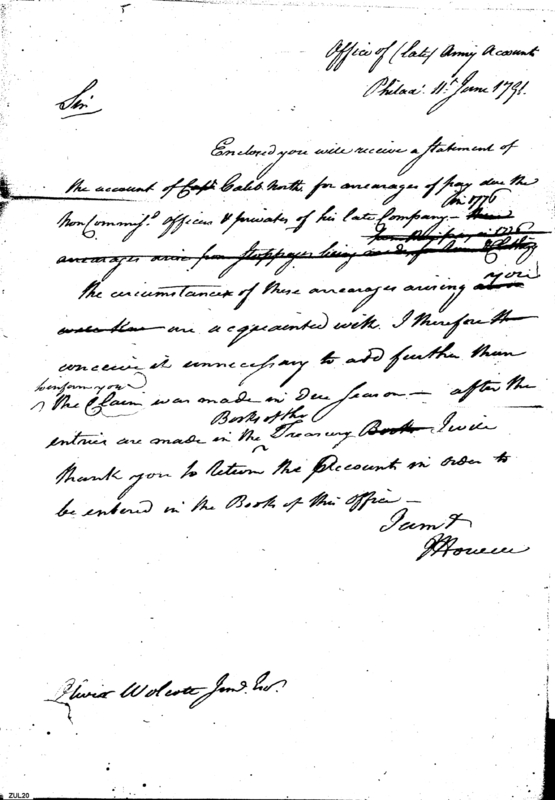 Office of (late) Army Accounts
Philad. 11th June 1791.
Sir
Enclosed you will receive a Statement of
the account of Capt. Caleb North for arrearages of pay due the
in 1776
Non Commisd. Officers & privates of his late Company —
arrearages arise from Stoppages being
The circumstances of these arrearages arising you
are acquainted with. I therefore
conceive it unnecessary to add further than
to inform you
the Claim was made in due Season — after the
Books of the
entries are made in the Treasury Books I will
thank you to return the Accounts in order to
be entered in the Books of this Office —
I am &
JHowell
Oliver Wolcott Junr. Esqr.
ZUL20